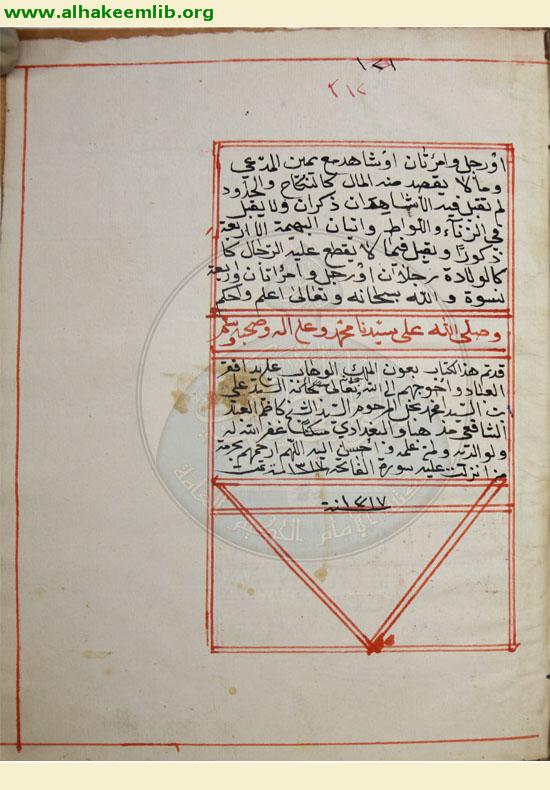 www.alhakeemlib.org
١٢١
٣١٢
او رجل وامرأتان او شاهد مع يمين المدعي
وما لا يقصد منه المال كالنكاح والحدود
لم تقبل فيه الا شاهدان ذكران ولا يقبل
في الزناء واللواط واتيان البهيمة الا اربعة
ذكورا ويقبل فيما لا يقطع عليه الرجال كا
كالولادة رجلان او رجل وامرأتان واربعة
نسوة والله سبحانه وتعالى اعلم وحكم
وصلى الله على سيدنا محمد وعلى اله وصحبه وسلم
قد تم هذا الكتاب بعون الملك الوهاب على يد افقر
العباد واحوجهم الى الله تعالى السيد علي
بن السيد محمد نجل المرحوم السيد الشيخ كاظم
الشافعي مذهبا والبغدادي مسكنا غفر الله له
ولوالديه ولمن علمه واحسن اليه اللهم ارحمهم بحرمة
من انزلت عليه سورة الفاتحة ١٣١٧ سنة تمت
١٣١٧ سنة